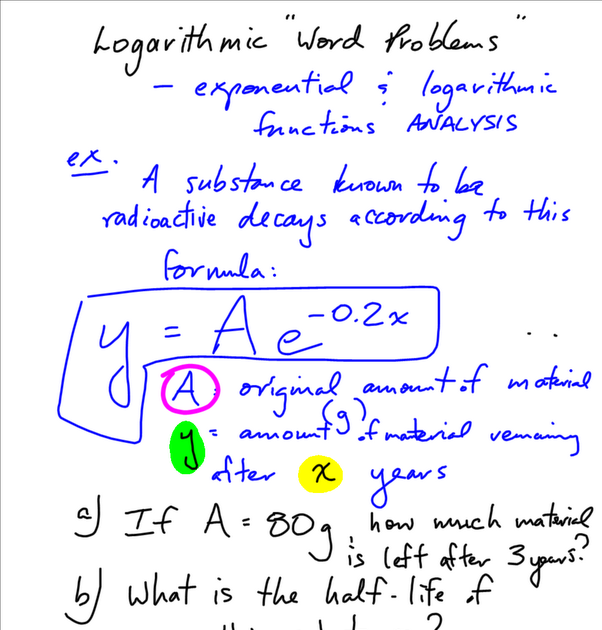 Logarithmic "Word Problems"
- exponential & logarithmic
functions ANALYSIS
ex.
A substance known to be
radioactive decays according to this
formula:
y = Ae^-0.2x
A = original amount of material
(g)
y = amount of material remaining
after x years
a) If A = 80g, how much material
is left after 3 years?
b) What is the half-life of